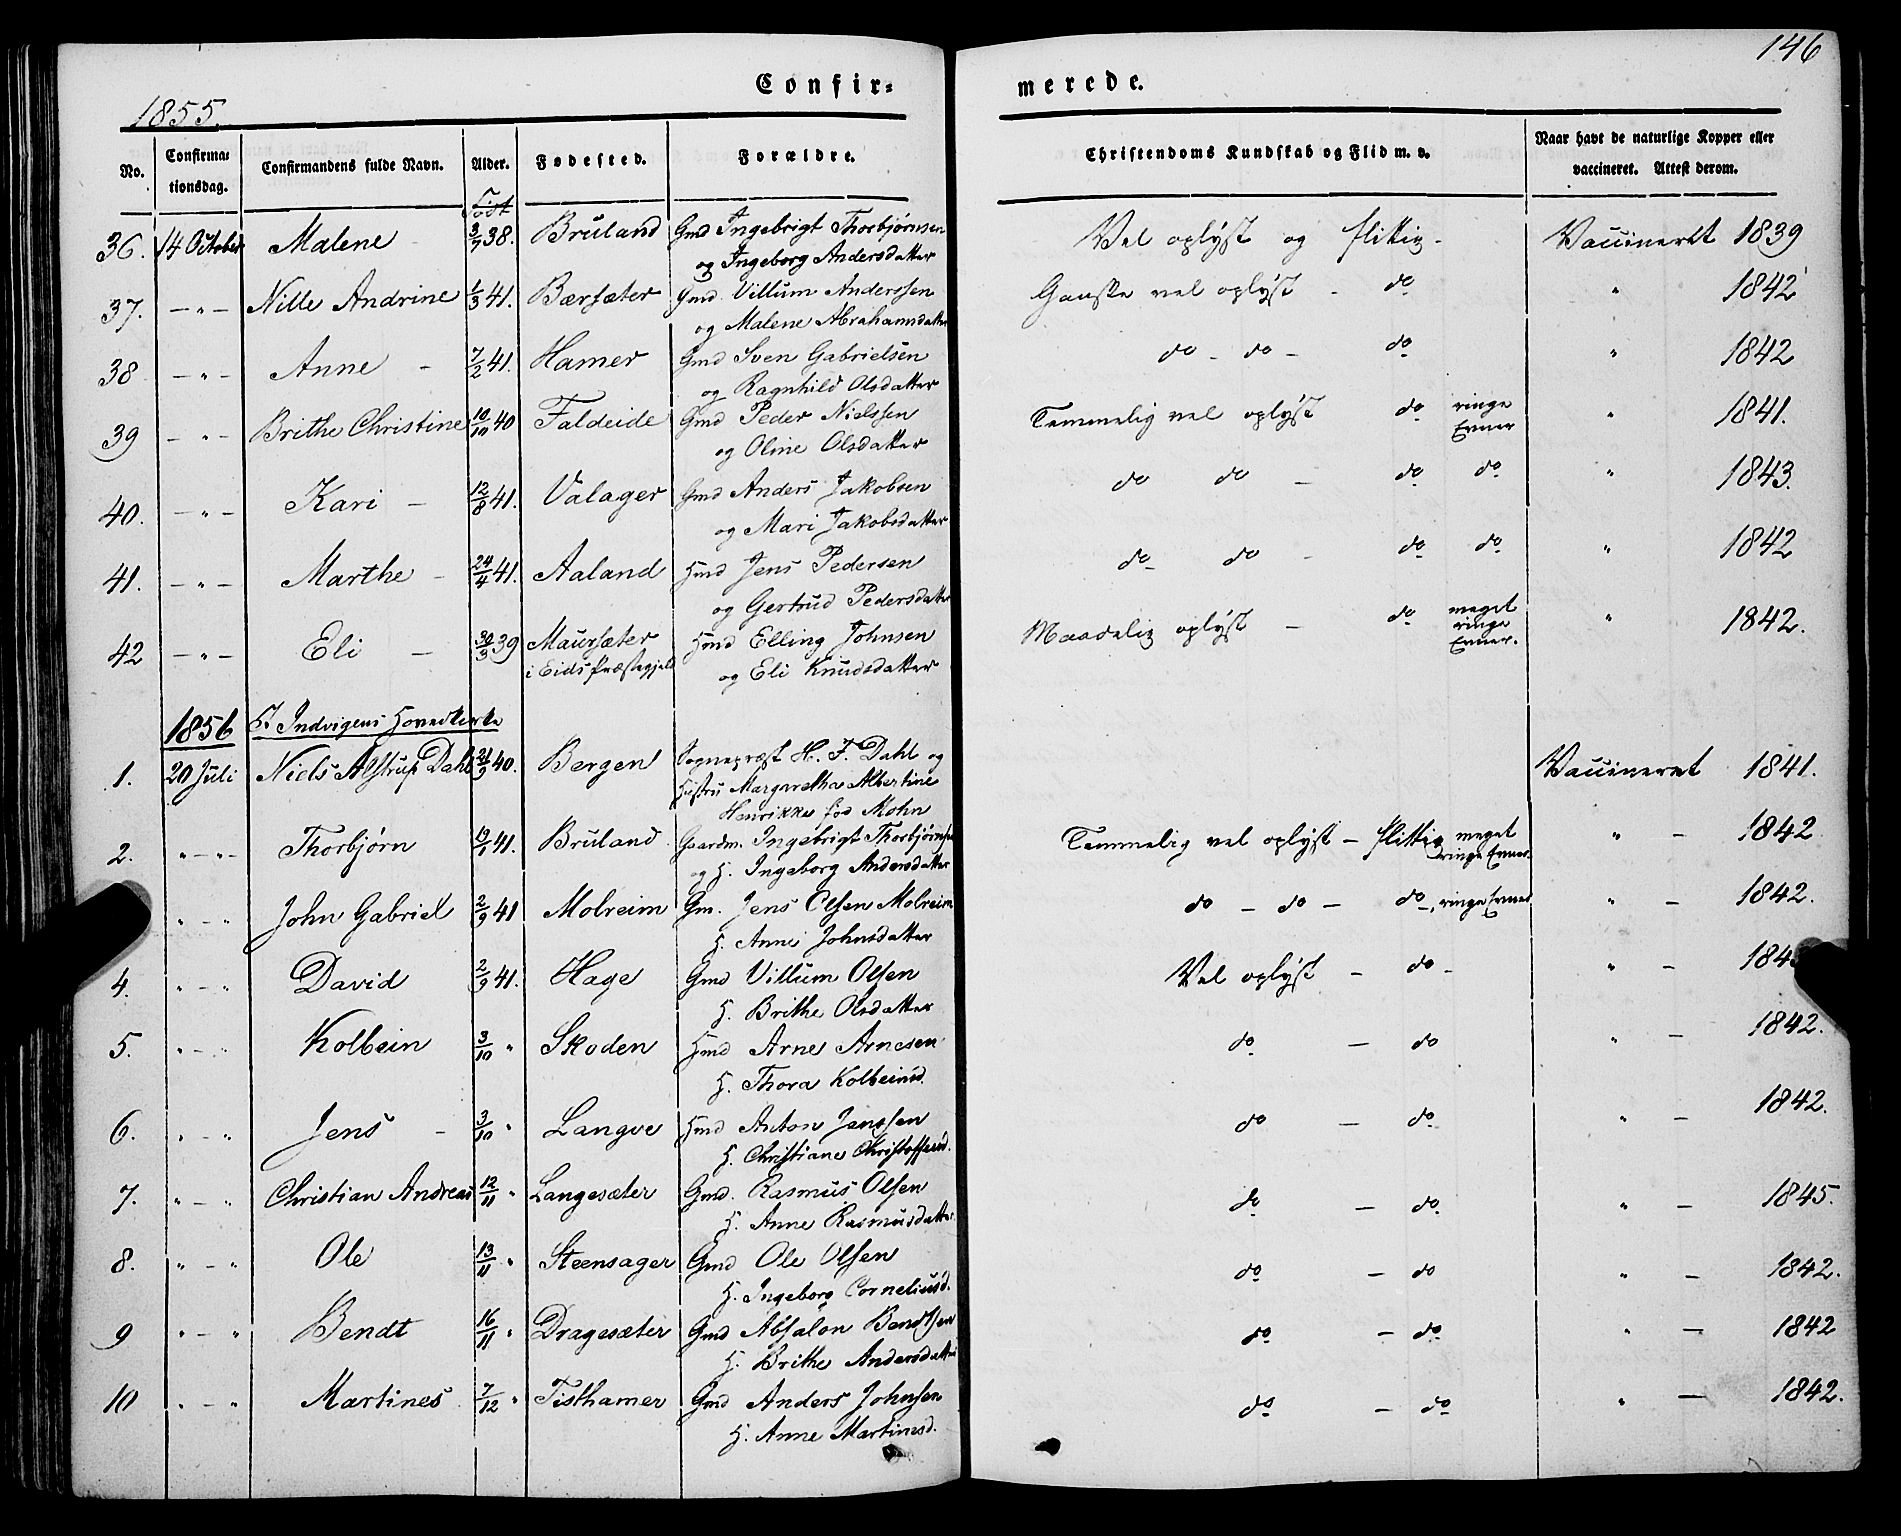 146
Confir= merede.
1855.
No. Confirma= tionsdag. Confirmandens fulde Navn. Alder. Fødested. Forældre. Christendoms Kundskab og Flid m. v. Naar havt de naturlige Kopper eller vaccineret. Attest derom.
Født
36. 14 October Malene 3/7 38. Bruland Gmd Ingebrigt Thorbjørnsen Vel oplyst og flittig. Vaccineret 1839
og Ingeborg Andersdatter
37. — " — Nille Andrine 1/3 41. Bærsæter Gmd. Villum Anderssen Ganske vel oplyst - do " 1842
og Malene Abrahamsdatter
38 — " — Anne - 7/2 41. Hamer Gmd Sven Gabrielsen do - do - do " 1842
og Ragnhild Olsdatter
39 — " — Brithe Christine 10/10 40 Faldeide Gmd Peder Nielssen Temmelig vel oplyst do ringe Evner " 1841.
og Oline Olsdatter
40. — " — Kari - 12/8 41. Valager Gmd Anders Jakobsen do do - do do " 1843.
og Mari Jakobsdatter
41. — " — Marthe - 24/4 41. Aaland Hmd Jens Pedersen do do - do do " 1842
og Gertrud Pedersdatter
42 — " — Eli - 30/3 39 Maursæter Hmd Elling Johnsen Maadelig oplyst - do meget ringe Evner. " 1842.
i Eids Præstegjeld og Eli Knudsdatter
1856 I Indvigens Hovedkirke
1. 20 Juli Niels Alstrup Dahl 21/9 40. Bergen Sognepræst H. F. Dahl og Vaccineret 1841.
Hustru Margaretha Albertine
Henrikke fød Mohn
2. " — " Thorbjørn 19/1 41. Bruland Gaardm. Ingebrigt Thorbjørnsen Temmelig vel oplyst - flittig meget ringe Evner. " — 1842
og H. Ingeborg Andersdatter
" — " John Gabriel 2/9 41 Molreim Gm. Jens Olsen Molreim do - do - do, ringe Evner " — 1842.
H. Anne Johnsdatter
4. " — " David 2/9 41. Hage Gmd Villum Olsen Vel oplyst - do - " — 184
H. Brithe Olsdatter
5. " — " Kolbein 3/10 " Skoden Hmd Arne Arnesen do — do " — 1842.
H. Thora Kolbeinsd.
6. " — " Jens - 3/10 " Langve Hmd Anton Jenssen do — do " — 1842.
H. Christiane Christoffersd.
7. " — " Christian Andreas 12/11 " Langesæter Gmd. Rasmus Olsen do — do " — 1845.
H. Anne Rasmusdatter
8. " — " Ole 13/11 " Steensager Gmd Ole Olsen do — do " — 1842.
H. Ingeborg Corneliusd.
9 " — " Bendt 16/11 " Dragesæter Gmd Absalon Bendtsen do — do " — 1842
H. Brithe Andersdatter
10 " — " Martines 7/12 " Tisthamer Gmd Anders Johnsen do — do " — 1842.
H. Anne Martinesd.